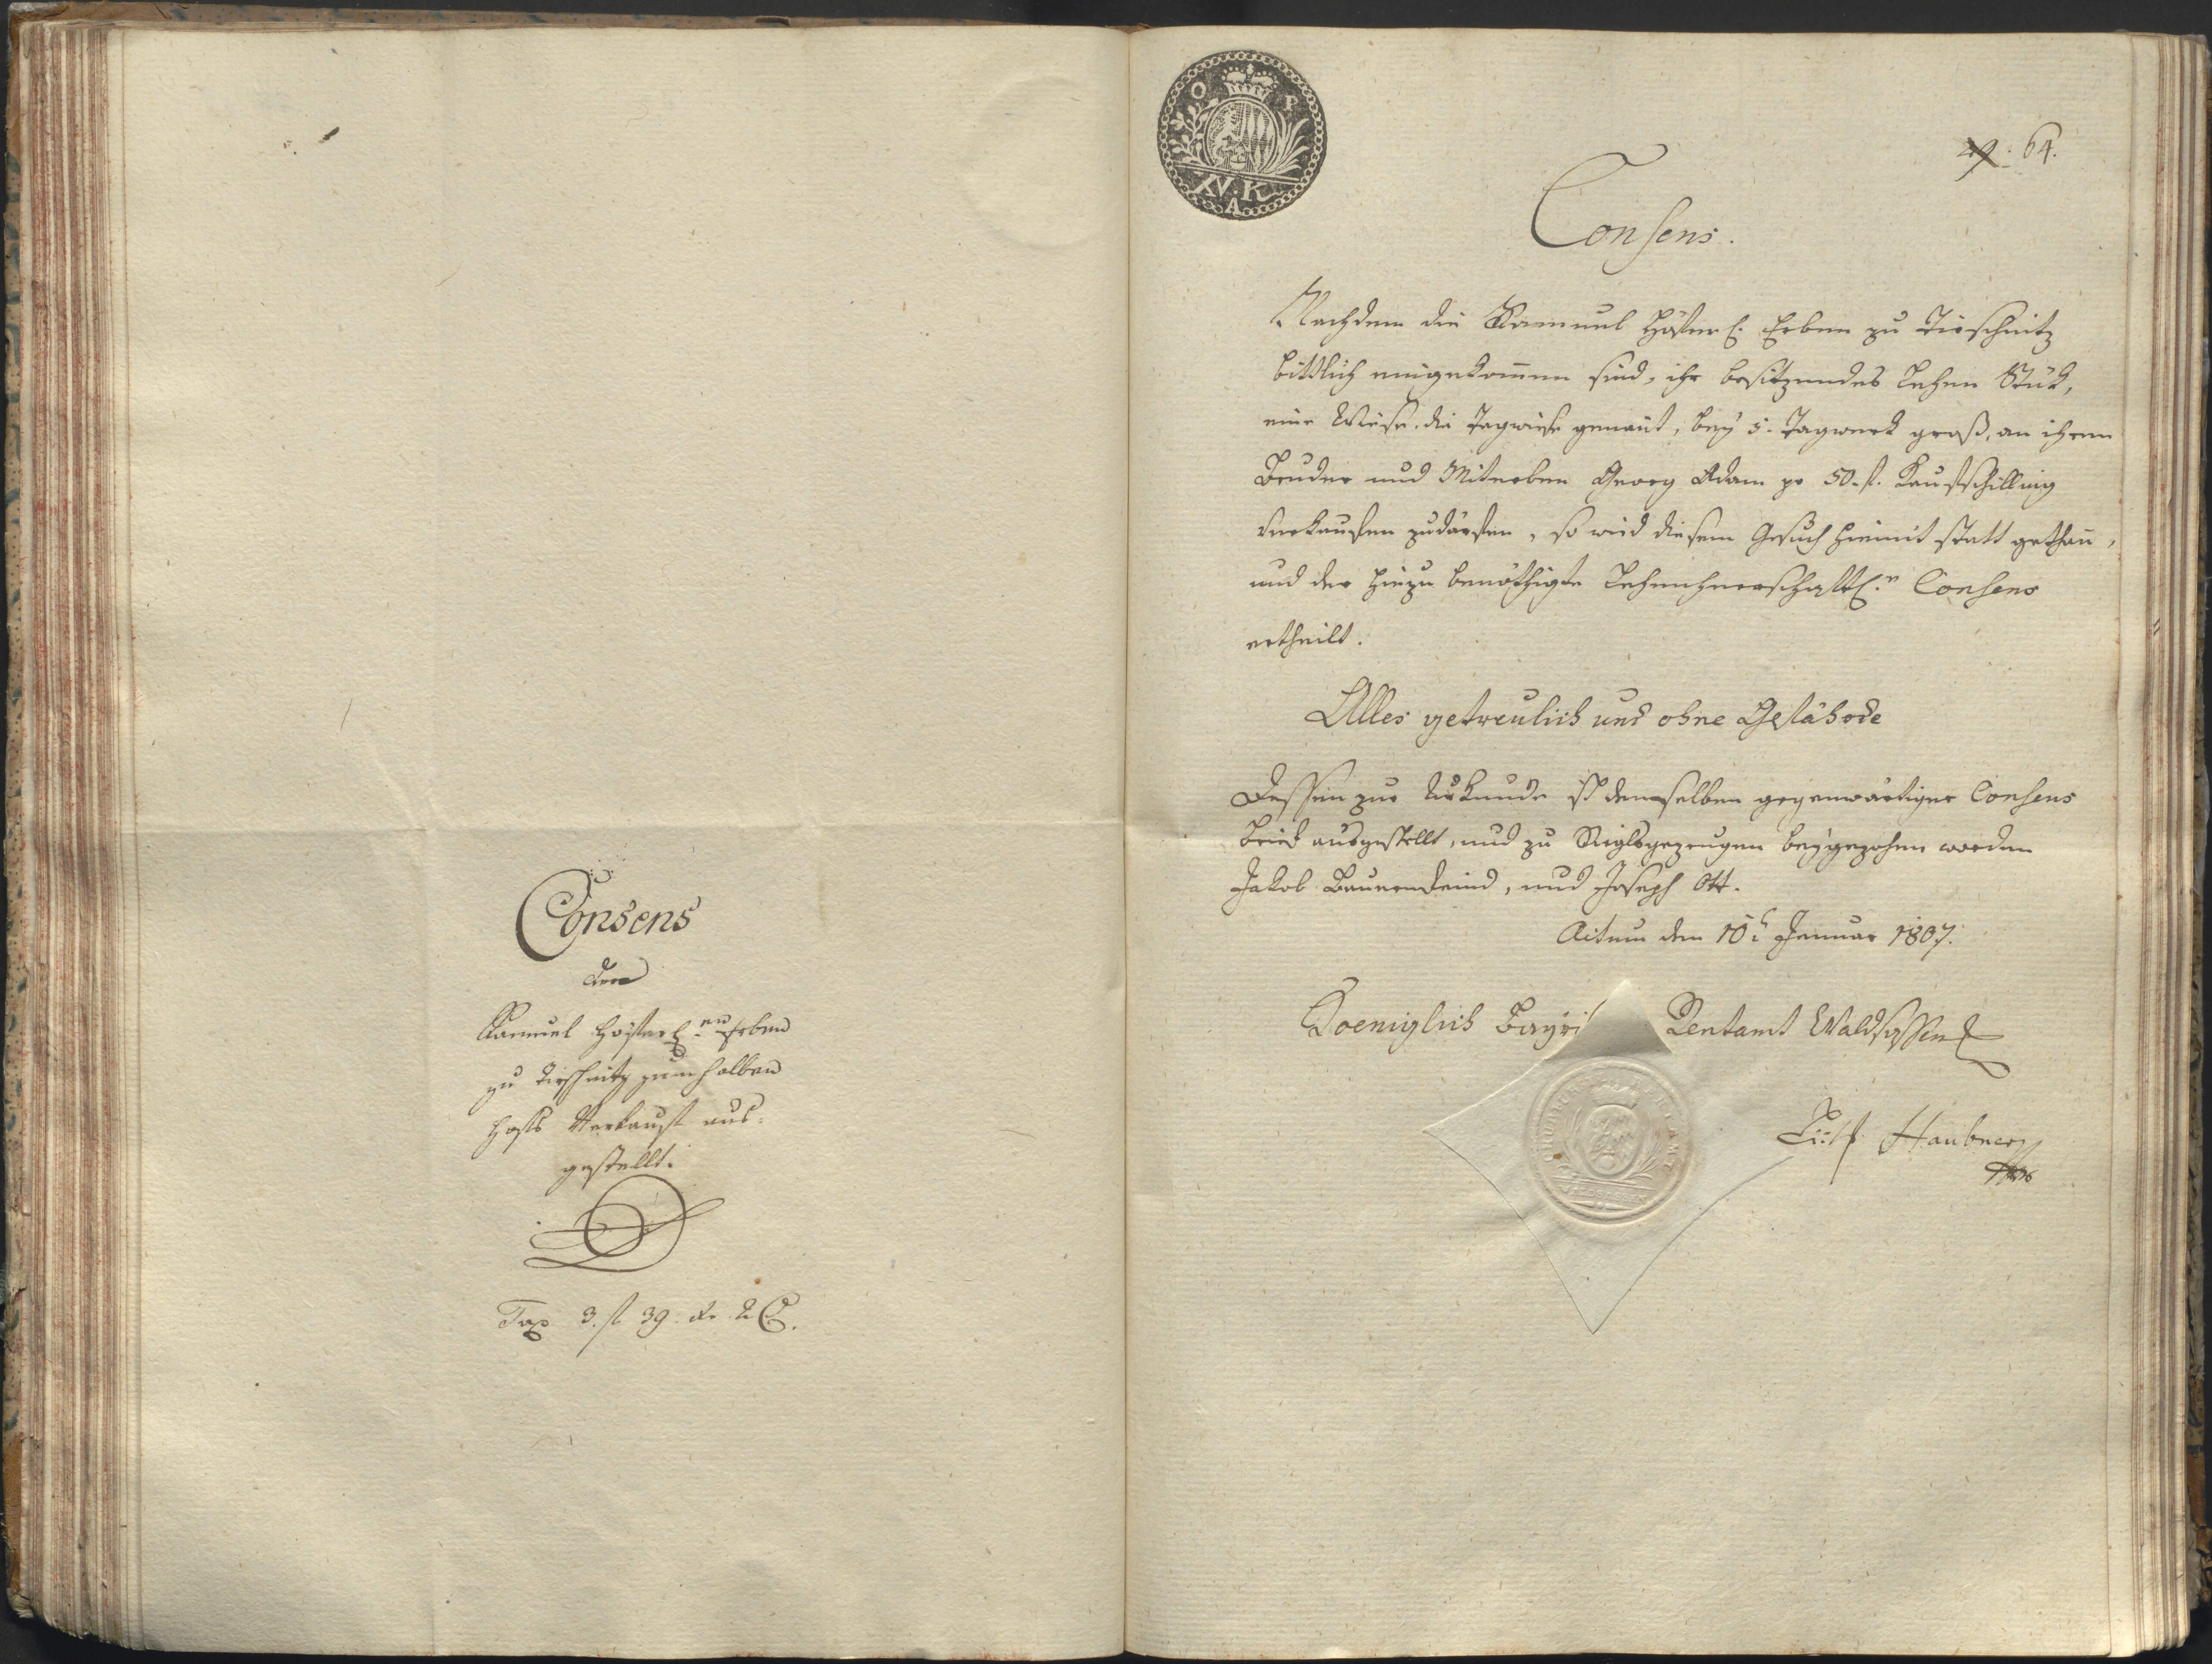 Consens
den
Samuel Höferl.en Erben
zu Tirschnitz zum halben
Hofs Verkauf aus-
gestellt.
Tax 3. fl 39. kr.
O P
XV. K
A
29. 64.
Consens.
Nachdem die Samuel Höferl. Erben zu Tirschnitz
bittlich eingekommen sind, ihr besitzendes Lehen Stük,
eine Wiese, die Tagwiese genannt, bey 5. Tagwerk groß, an ihren
Bruder und Miterben Georg Adam pr 50. f. Kaufschilling
verkaufen zudärfen, so wird diesem Gesuch hiemit statt gethan,
und der hiezu benöthigte lehenherrschaftl.e Consens
ertheilt.
Alles getreulich und ohne Gefährde
Dessen zur Urkunde ist denselben gegenwärtiger Consens
Brief ausgestellt, und zu Siglsgezeugen beygezohen worden
Jakob Bauernfeind, und Joseph Ott.
Actum den 10t Januar 1807.
Koeniglich Bayri Rentamt Waldsassen
Haubner